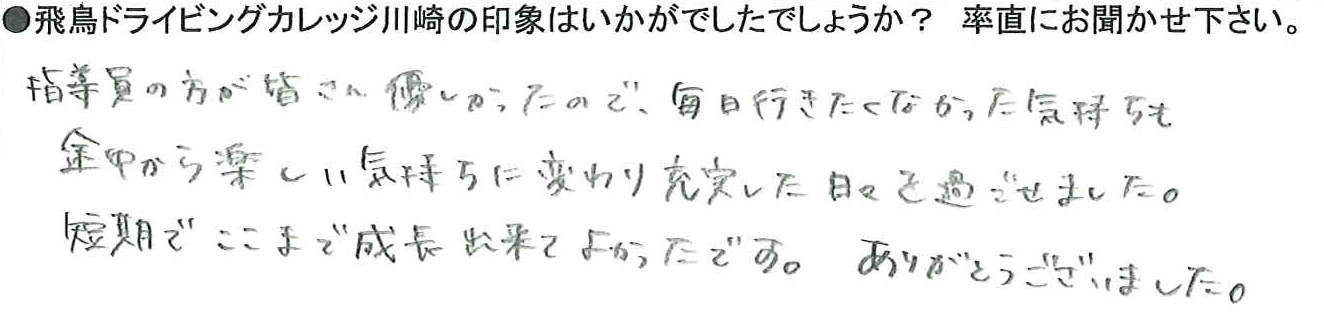 ●飛鳥ドライビングカレッジ川崎の印象はいかがでしたでしょうか？ 率直にお聞かせ下さい。
指導員の方が皆さん優しかったので、毎日行きたくなかった気持ちも
途中から楽しい気持ちに変わり充実した日々を過ごせました。
短期でここまで成長出来てよかったです。 ありがとうございました。